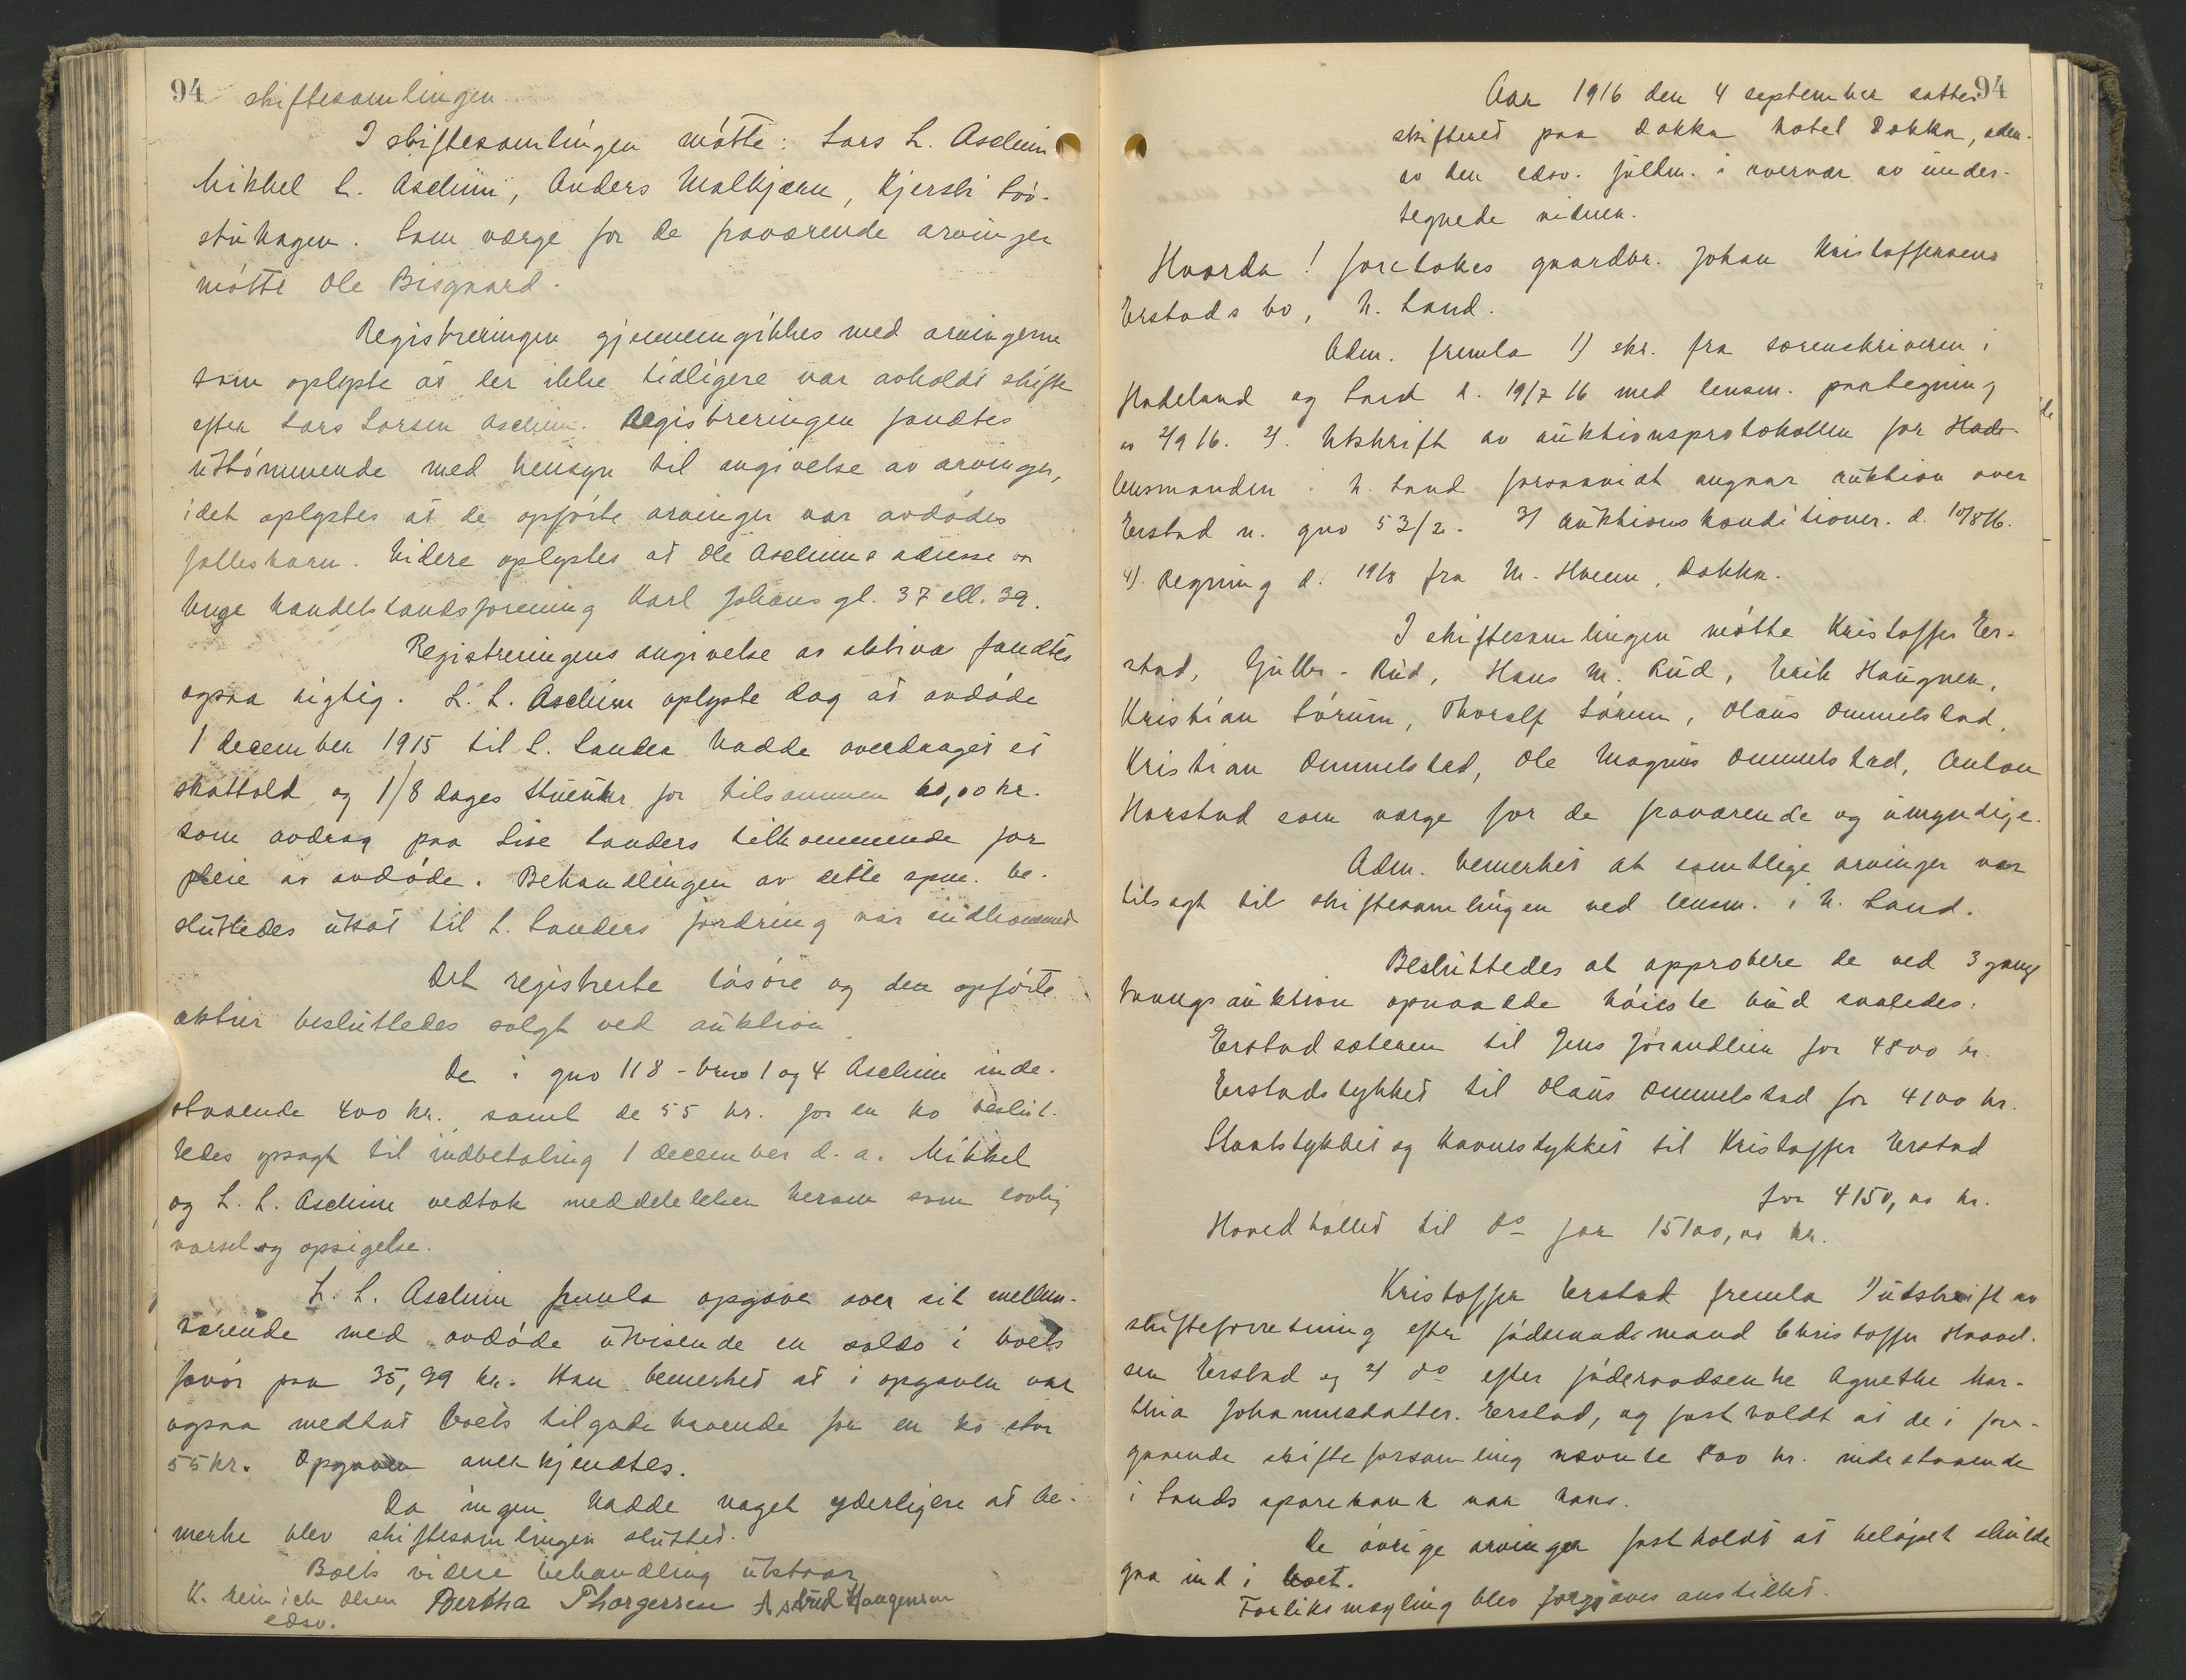 94 skiftesamlingen
I skiftesamlingen møtte: Lars L. Aschim
Mikkel L. Aschim, Anders Malkjærn, Kjersti LØ-
stuhagen. Som værge for de fraværende arvinger
møtte Ole Bisgaard.
Registreringen gjennemgikkes med arvingerne
som oplyste at der ikke tidligere var avholdt skifte
efter Lars Larsen Aschim. Registreringen fandtes
uttømmende med hensyn til angivelse av arvinger,
idet oplystes at de opførte arvinger var avdødes
fællesbarn. Videre oplystes at Ole Aschims adresse er
Unge handelstandsforening Karl Johans gt. 37 ell. 39.
Registreringens angivelse av aktiva fandtes
ogsaa rigtig. L. L. Aschim oplyste dog at avdøde
1 december 1915 til L. Landen hadde overdraget et
skattold og 1/8 dages Stueuhr for tilsammen 60,00 kr.
som avdrag paa Lise Landers tilkommende for
pleie av avdøde. Behandlingen av dette spm. be-
sluttedes utsat til L. Landers fordring var indkommet
Det registrerte løsøre og den opførte
aktier besluttedes solgt ved auktion
De i gno 118 - brno 1 og 4 Aschim inde-
staaende 400 kr. samt de 55 kr. for en ko beslut-
tedes opsagt til indbetaling 1 december d. a. Mikkel
og L. L. Aschim vedtok meddelelsen herom som lovlig
varsel og opsigelse.
L. L. Aschim fremla opgave over sit mellem-
værende med avdøde utvisende en saldo i boets
favør paa 35,99 kr. Han bemerket at i opgaven var
ogsaa medtat boets tilgodehavende for en ko stor
55 kr. Opgaven anerkjendtes.
Da ingen hadde noget yderligere at be-
merke blev skiftesamlingen sluttet.
Boets videre behandling utstaar
K. Heinrich Olsen Bertha Thorgersen Astrid Haugensen
edsv.
94
Aar 1916 den 4 september sattes
skifteret paa Dokka hotel Dokka, adm.
av den edsv. fuldm. i overvær av under-
tegnede vidner.
Hvorda! foretokes gaardbr. Johan Kristoffersens
Erstads bo, N. Land.
Adm. fremla 1) skr. fra sorenskriveren i
Hadeland og Land d. 19/7 16 med lensm. paategning
av 2/9 16. 2). Utskrift av auktionsprotokollen for Hade
lensmanden i N. Land forsaavidt angaar auktion over
Erstad n. gno 53/2. 3) Auktionskonditioner. d. 10/8 16.
4). Regning d. 19/8 fra M. Hveem, Dokka.
I skiftesamlingen møtte Kristoffer Er-
stad, Gulbr. Rud, Hans M. Rud, Erik Haugner,
Kristian Sørum, Thoralf Sørum, Olaus Ommelstad,
Kristian Ommelstad, Ole Magnus Ommelstad, Anton
Harstad som værge for de fraværende og umyndige.
Adm. bemerket at samtlige arvinger var
tilsagt til skiftesamlingen ved lensm. i N. Land.
Besluttedes at approbere de ved 3 gangs
tvangsauktion opnaadde høieste bud saaledes:
Erstadsæteren til Jens Jørandlien for 4800 kr.
Erstadstykket til Olaus Ommelstad for 4100 kr.
Slaatstykket og havnestykket til Kristoffer Erstad
for 4150,00 kr.
Hovedbøllet til do for 15100,00 kr.
Kristoffer Erstad fremla 1) utskrift av
skifteforretning efter føderaadsmand Christoffer Haavel-
sen Erstad og 2) do efter føderaadsenke Agnethe Mar-
thia Johannesdatter Erstad, og fastholdt at de i fore-
gaaende skifteforsamling nævnte 800 kr. indestaaende
i Lands sparebank var hans.
De øvrige arvinger fastholdt at beløpet skulde
gaa ind i boet.
Forliksmægling blev forgjæves anstillet.